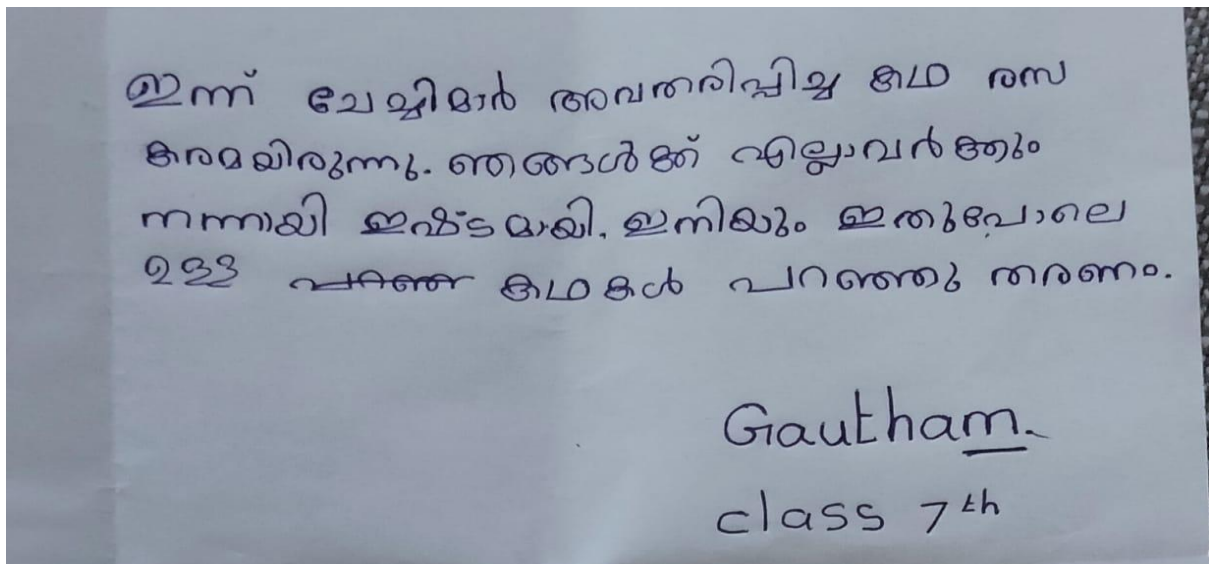 ഇന്ന് ചേച്ചിമാർ അവതരിപ്പിച്ച കഥ രസ
കരമയിരുന്നു. ഞങ്ങൾക്ക് എല്ലാവർക്കും
നന്നായി ഇഷ്ടമായി. ഇനിയും ഇതുപോലെ
ഉള്ള കഥകൾ പറഞ്ഞു തരണം.
Gautham.
class 7th